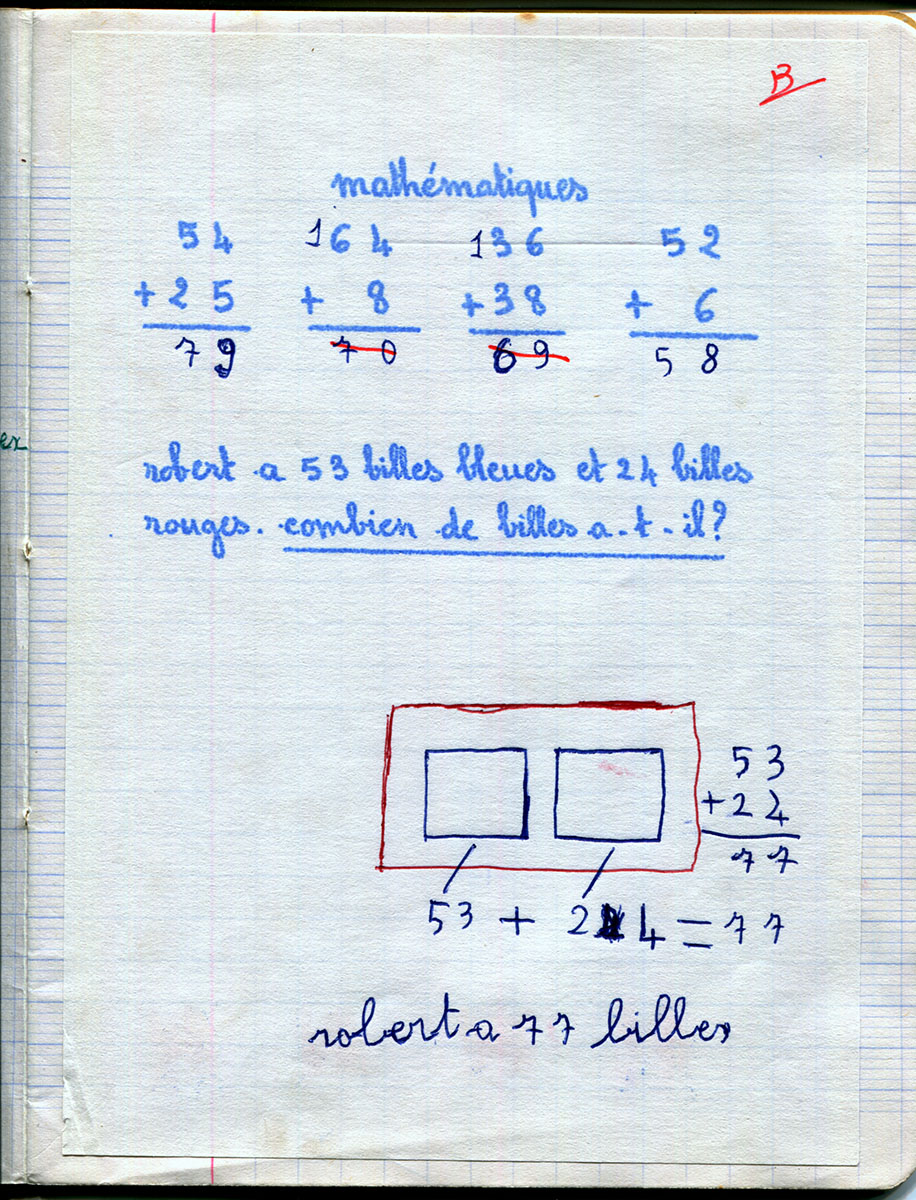 B
mathématiques
54 164 136 52
+25 + 8 +38 + 6
79 70 69 58
ex
robert a 53 billes bleues et 24 billes
rouges. combien de billes a-t-il?
53
+24
77
53 + 24 = 77
robert a 77 billes